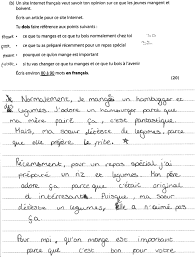 (b) Un site Internet français veut savoir ton opinion sur ce que les jeunes mangent et
boivent.
Écris un article pour ce site Internet.
Tu dois faire référence aux points suivants :
• ce que tu manges et ce que tu bois normalement chez toi
• ce que tu as préparé récemment pour un repas spécial
• pourquoi on mange est important
• si tu vas changer ce que tu manges et ce que tu bois à l'avenir
Écris environ 80 à 90 mots en français.
(20)
Normalement, je manges un hambugger et
legumes. J'adore un hamburger, parce que
ma mère faire ça, c'est fantastique.
Mais, ma sœur déteste de legumes, parce
que elle préfère le frite.
Récemment, pour un repas spécial j'ai
préparé un riz et legumes. Mon père
adore ça parce que c'était original
et intéressante. Puisque, ma sœur
déteste un legumes, elle a n'aimé pas
ça.
Pour moi, qu'on mange est important
parce que c'est bon pour votre